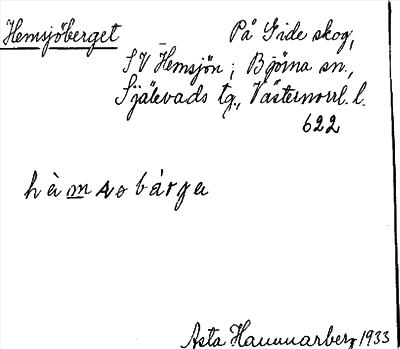 Hemsjöberget På Gide skog,
SV Hemsjön; Björna sn.,
Själevads tg., Västernorrl. l.
622
hàmsobárga
Asta Hammarberg 1933